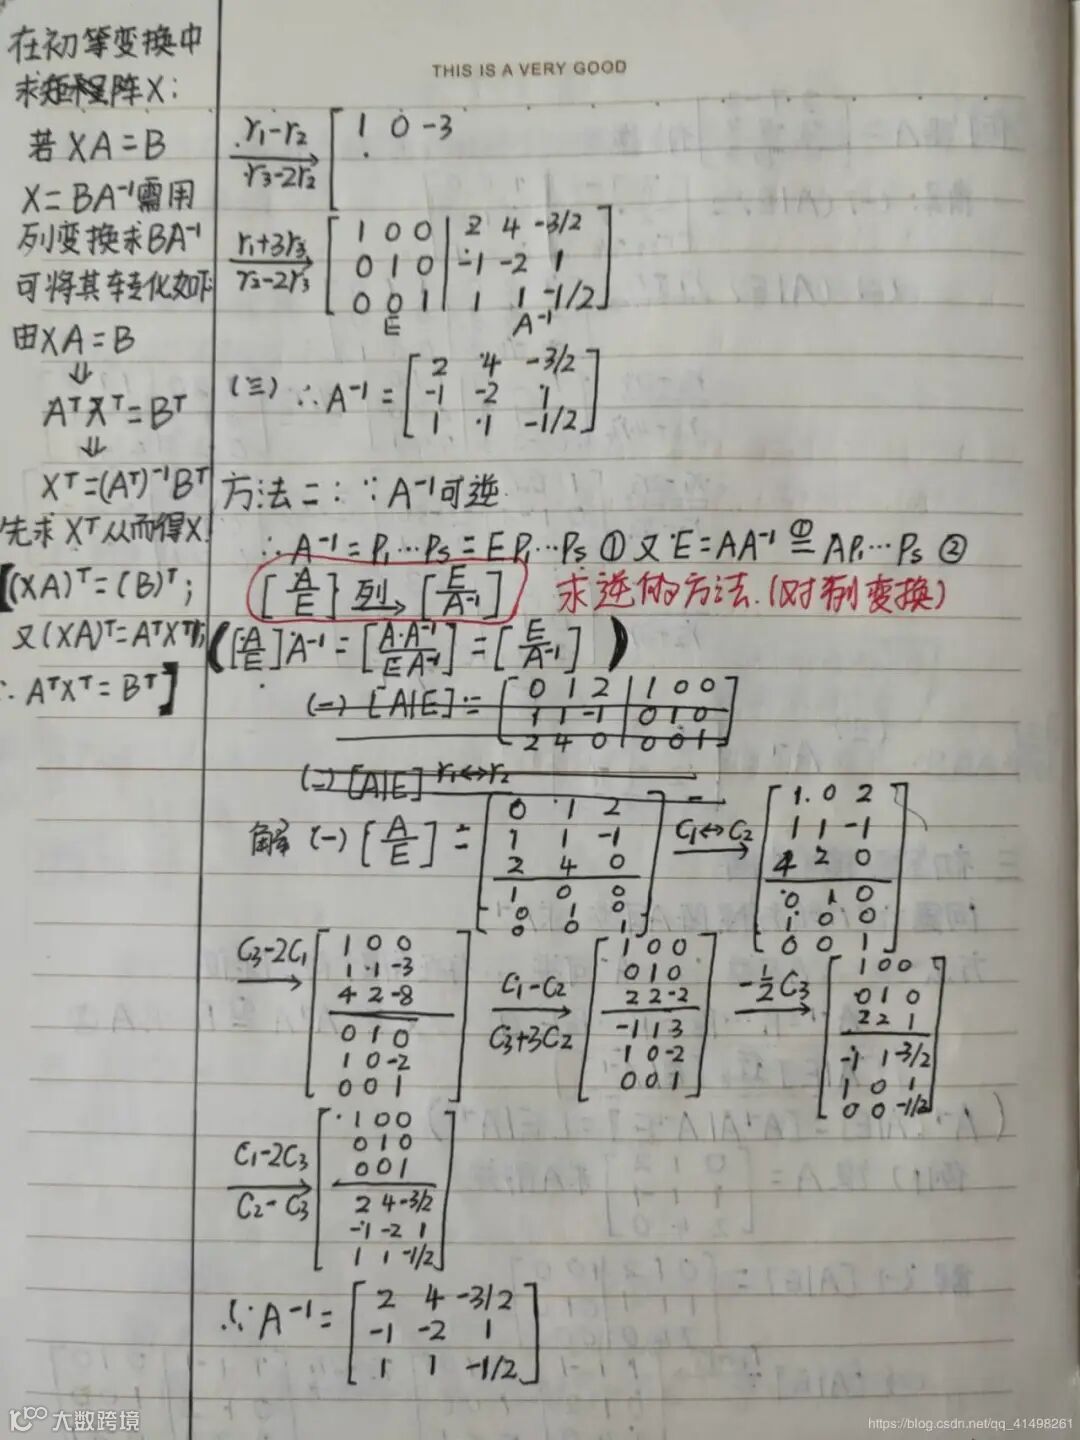 THIS IS A VERY GOOD
在初等变换中
求矩阵X:
若 XA=B
X=BA⁻¹需用
列变换求BA⁻¹
可将其转化如下
由XA=B
⇓
AᵀXᵀ=Bᵀ
⇓
Xᵀ=(Aᵀ)⁻¹Bᵀ
先求Xᵀ从而得X.
[(XA)ᵀ=(B)ᵀ;
又(XA)ᵀ=AᵀXᵀ;
∴AᵀXᵀ=Bᵀ]
r₁-r₂
r₃-2r₂
1 0 -3
r₁+3r₃
r₂-2r₃
1 0 0 | 2 4 -3/2
0 1 0 | -1 -2 1
0 0 1 | 1 1 -1/2
E A⁻¹
(三) ∴A⁻¹=
2 4 -3/2
-1 -2 1
1 1 -1/2
方法二: ∵A⁻¹可逆.
∴A⁻¹=P₁…Pₛ=EP₁…Pₛ ① 又E=AA⁻¹ ①= AP₁…Pₛ ②
[A/E] 列→ [E/A⁻¹] 求逆的方法.(对列变换)
([A/E]A⁻¹=[A·A⁻¹/EA⁻¹]=[E/A⁻¹])
(一) [A|E]=
0 1 2 | 1 0 0
1 1 -1 | 0 1 0
2 4 0 | 0 0 1
(二) [A|E] r₁↔r₂
解 (一) [A/E]=
0 1 2
1 1 -1
2 4 0
1 0 0
0 1 0
0 0 1
C₁↔C₂
1 0 2
1 1 -1
4 2 0
0 1 0
1 0 0
0 0 1
C₃-2C₁
1 0 0
1 1 -3
4 2 -8
0 1 0
1 0 -2
0 0 1
C₁-C₂
C₃+3C₂
1 0 0
0 1 0
2 2 -2
-1 1 3
1 0 -2
0 0 1
-½C₃
1 0 0
0 1 0
2 2 1
-1 1 -3/2
1 0 1
0 0 -1/2
C₁-2C₃
C₂-C₃
1 0 0
0 1 0
0 0 1
2 4 -3/2
-1 -2 1
1 1 -1/2
∴A⁻¹=
2 4 -3/2
-1 -2 1
1 1 -1/2
大数跨境
https://blog.csdn.net/qq_41498261